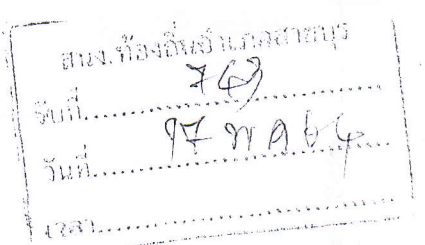 สนง.ท้องถิ่นอำเภอสายบุรี
รับที่..........743..........
วันที่..........17 พ ค 64..........
เวลา..........